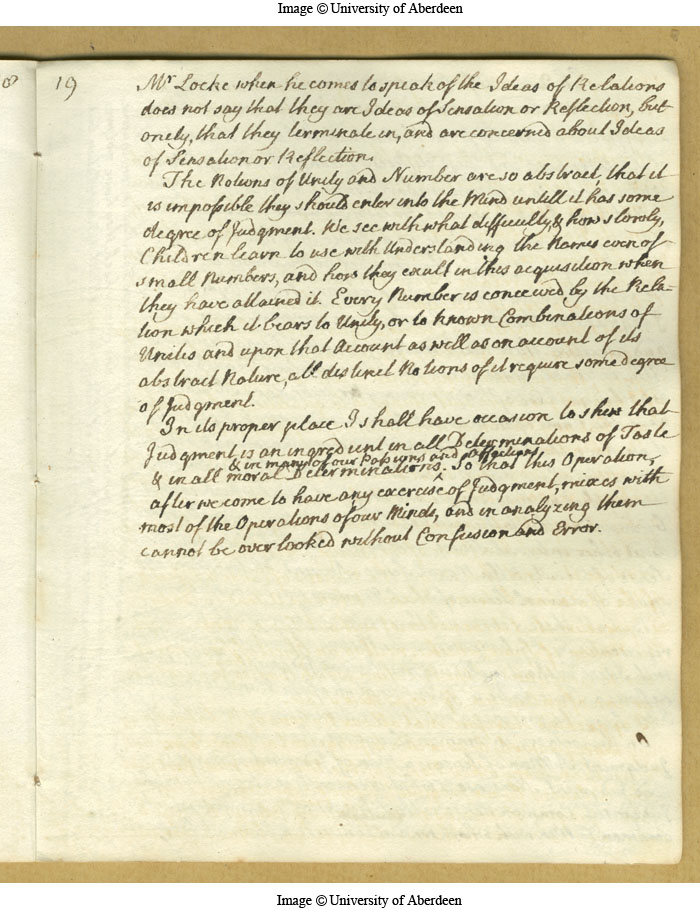 Image © University of Aberdeen
8
19
Mr Locke when he comes to speak of the Ideas of Relations
does not say that they are Ideas of Sensation or Reflection, but
onely, that they terminate in, and are concerned about Ideas
of Sensation or Reflection.
The Notions of Unity and Number are so abstract, that it
is impossible they should enter into the Mind untill it has some
degree of Judgment. We see with what difficulty, & how slowly,
Children learn to use with Understanding the Names even of
small Numbers, and how they exult in this acquisition when
they have attained it. Every Number is conceived by the Rela-
tion which it bears to Unity, or to known Combinations of
Units and upon that Account as well as on account of its
abstract Nature, all distinct Notions of it require some degree
of Judgment.
In its proper place I shall have occasion to shew that
Judgment is an ingredient in all Determinations of Taste
& in many of our Passions and Affections
& in all moral Determinations. So that this Operation,
after we come to have any exercise of Judgment, mixes with
most of the Operations of our Minds, and in analyzing them
cannot be overlooked without Confusion and Error.
Image © University of Aberdeen